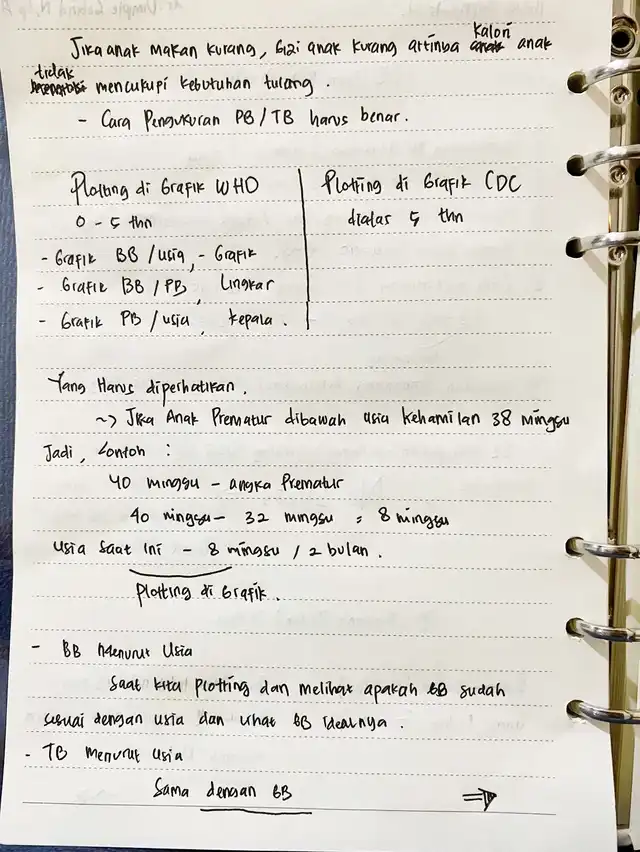 Jika anak makan kurang, Gizi anak kurang artinya kalori anak
tidak mencukupi kebutuhan tulang.
- Cara Pengukuran PB/TB harus benar.
Plotting di Grafik WHO
0 - 5 thn
- Grafik BB/usia, - Grafik
- Grafik BB/PB, Lingkar
- Grafik PB/usia, kepala.
Plotting di Grafik CDC
diatas 5 thn
Yang Harus diperhatikan.
~> Jika Anak Prematur dibawah usia kehamilan 38 minggu
Jadi, Contoh :
40 minggu - angka Prematur
40 minggu - 32 minggu = 8 minggu
Usia saat ini - 8 minggu / 2 bulan.
Plotting di Grafik.
- BB Menurut Usia
Saat kita plotting dan melihat apakah BB sudah
sesuai dengan usia dan lihat BB Idealnya.
- TB menurut Usia
Sama dengan BB ⇒